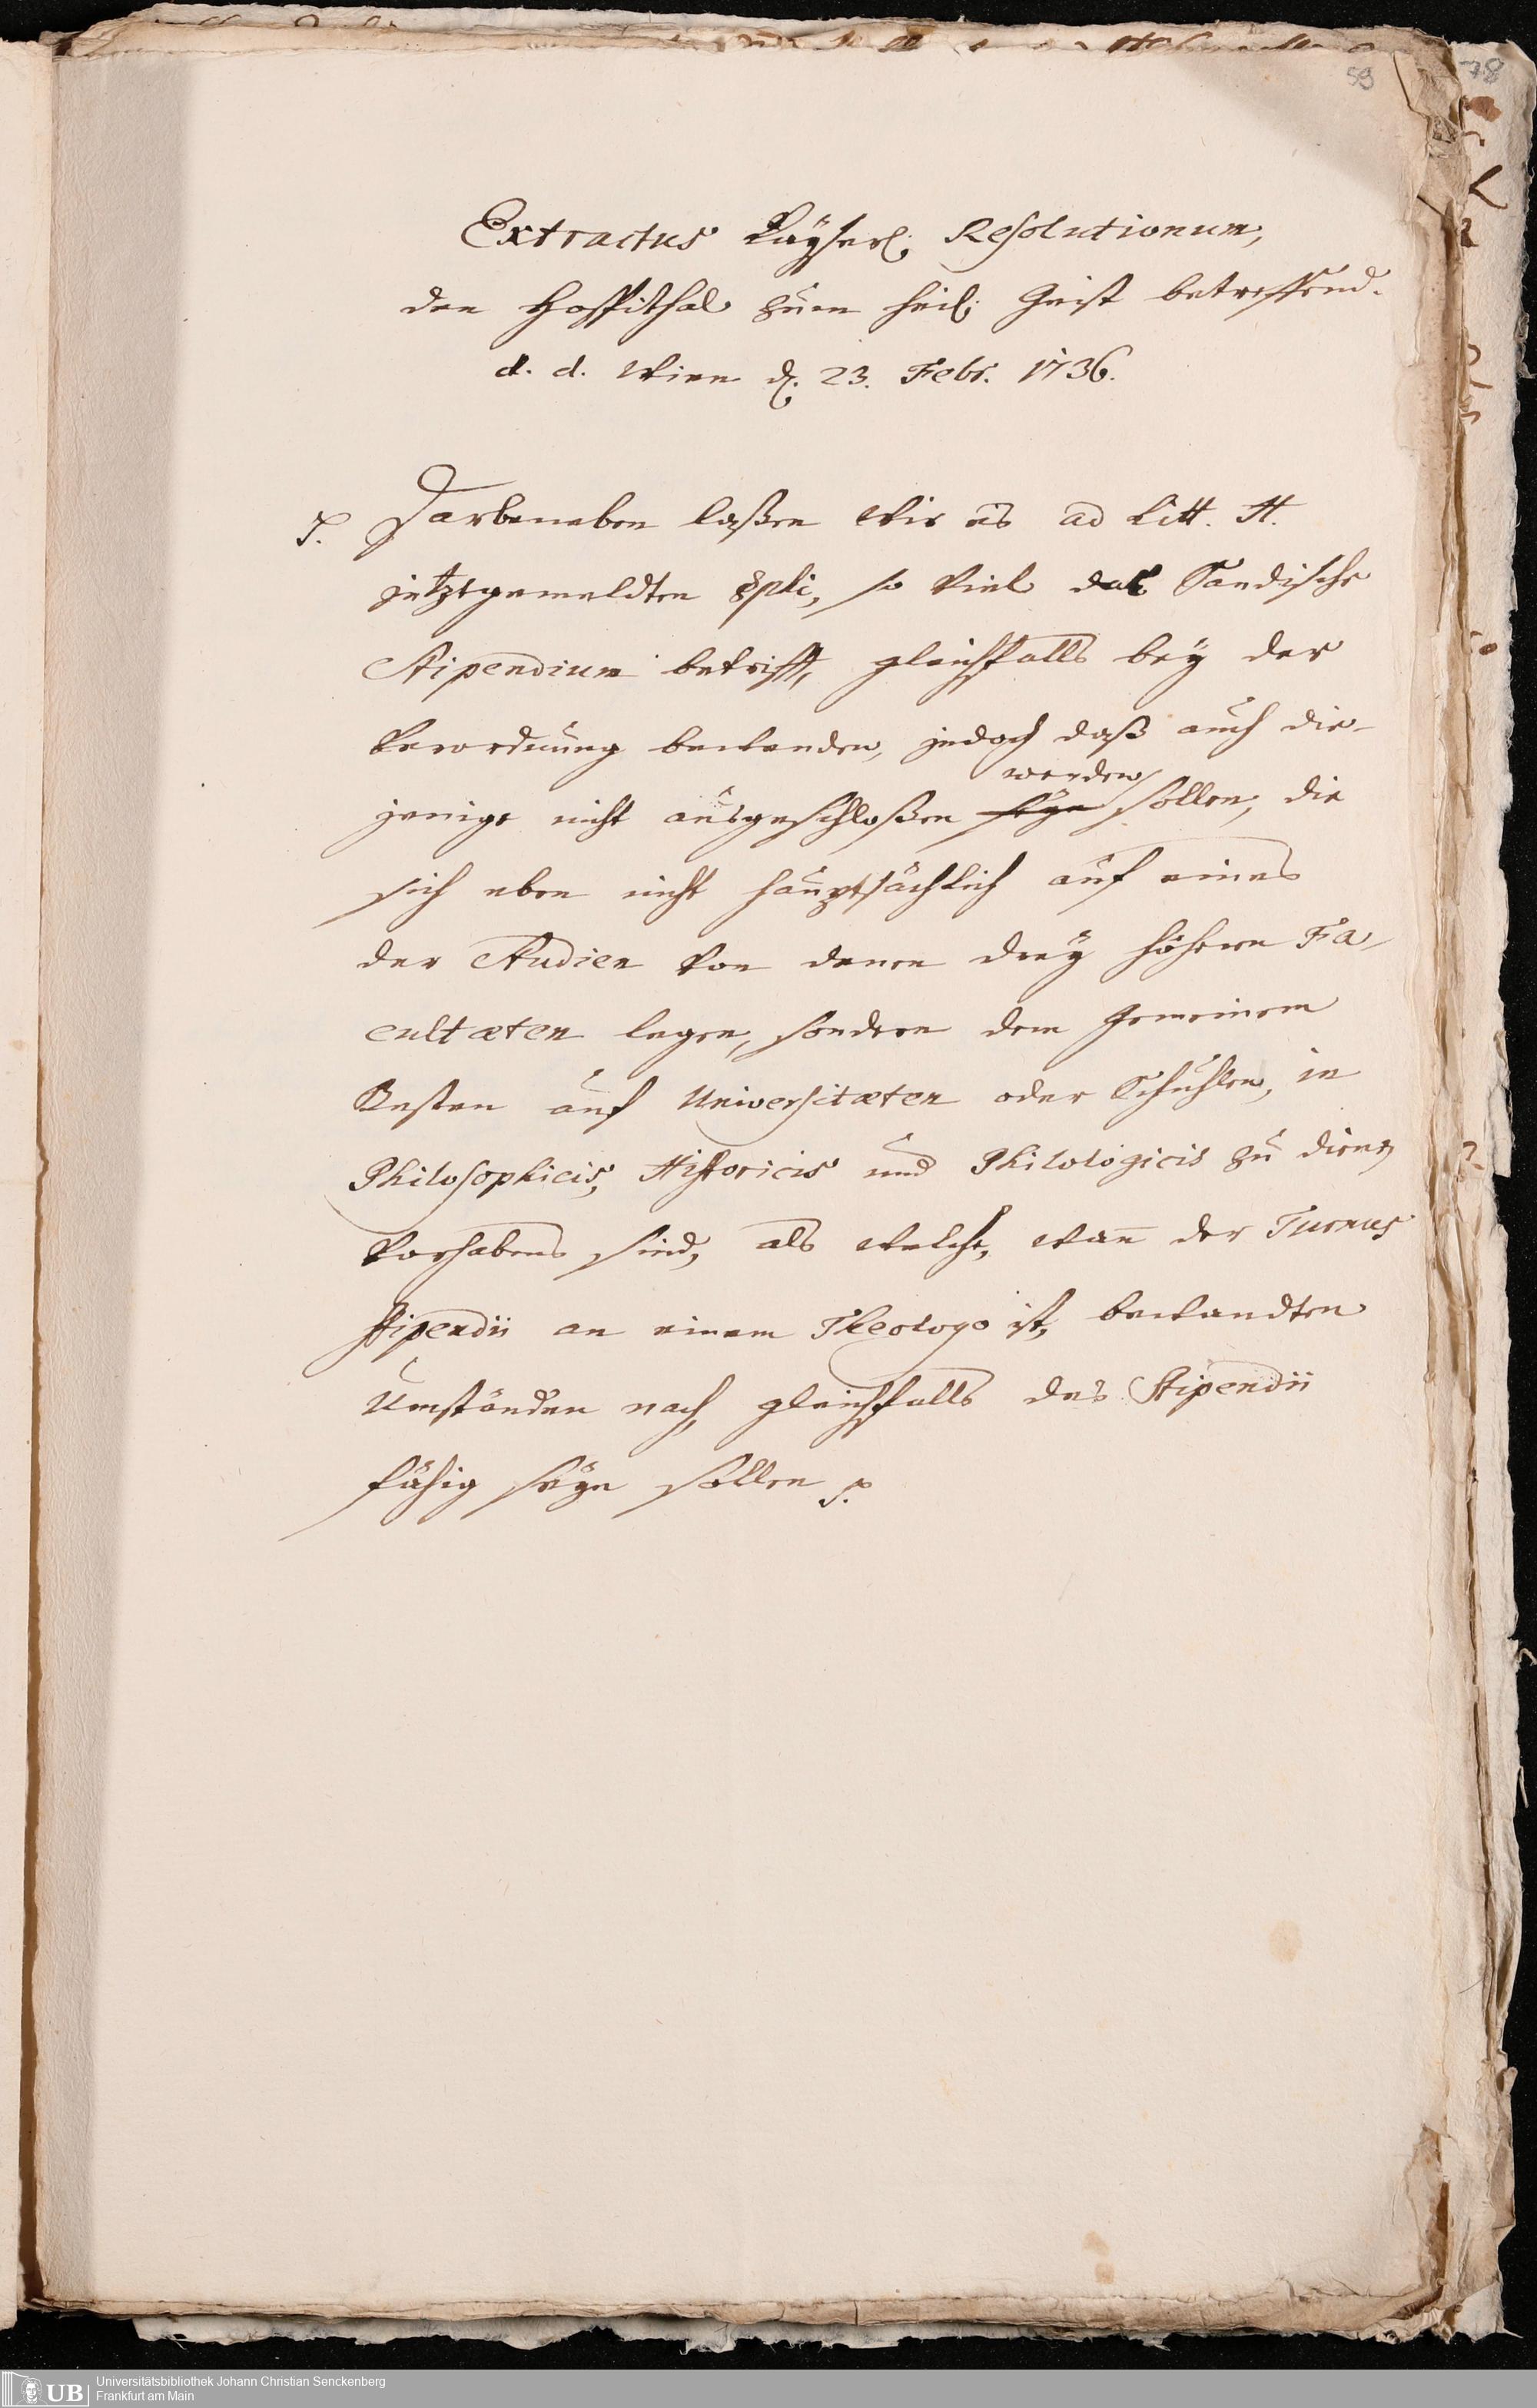 59
78
Extractus Kayserl. Resolutionum,
den Hospithal zum heil. Geist betreffend.
d. d. Wien d. 23. Febr. 1736.
p. Darbeneben laßen Wir es ad Litt. H.
jetztgemeldten §phi, so viel das Sandische
Stipendium betrifft, gleichfalls bey der
Verordnung bewenden, jedoch daß auch die-
jenige nicht ausgeschloßen seyn werden sollen, die
sich eben nicht hauptsächlich auf eines
der Studien von denen drey höhern Fa-
cultæten legen, sondern dem gemeinem
Besten auf Universitæten oder Schuhlen, in
Philosophicis, Historicis und Philologicis zu dienen
Vorhabens sind, als welche, wann der Turnus
stipendii an einem Theologo ist, bewandten
Umständen nach, gleichfalls des Stipendii
fähig seyn sollen p.
UB
Universitätsbibliothek Johann Christian Senckenberg
Frankfurt am Main